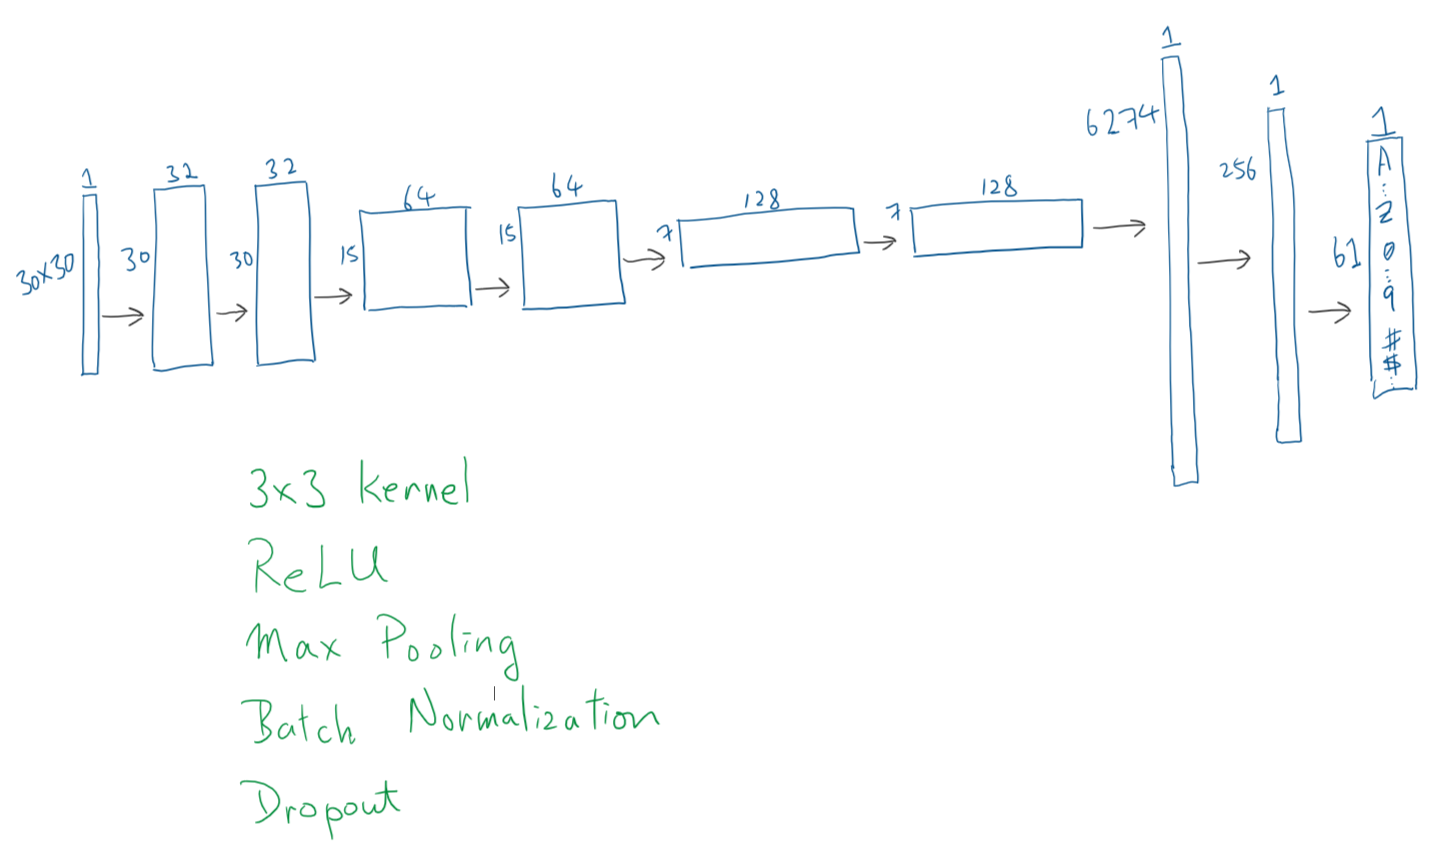 1
30x30
32
30
32
30
64
15
64
15
128
7
128
7
1
6274
1
256
1
61
A
:
Z
0
:
9
#
$
:
3x3 kernel
ReLU
Max Pooling
Batch Normalization
Dropout